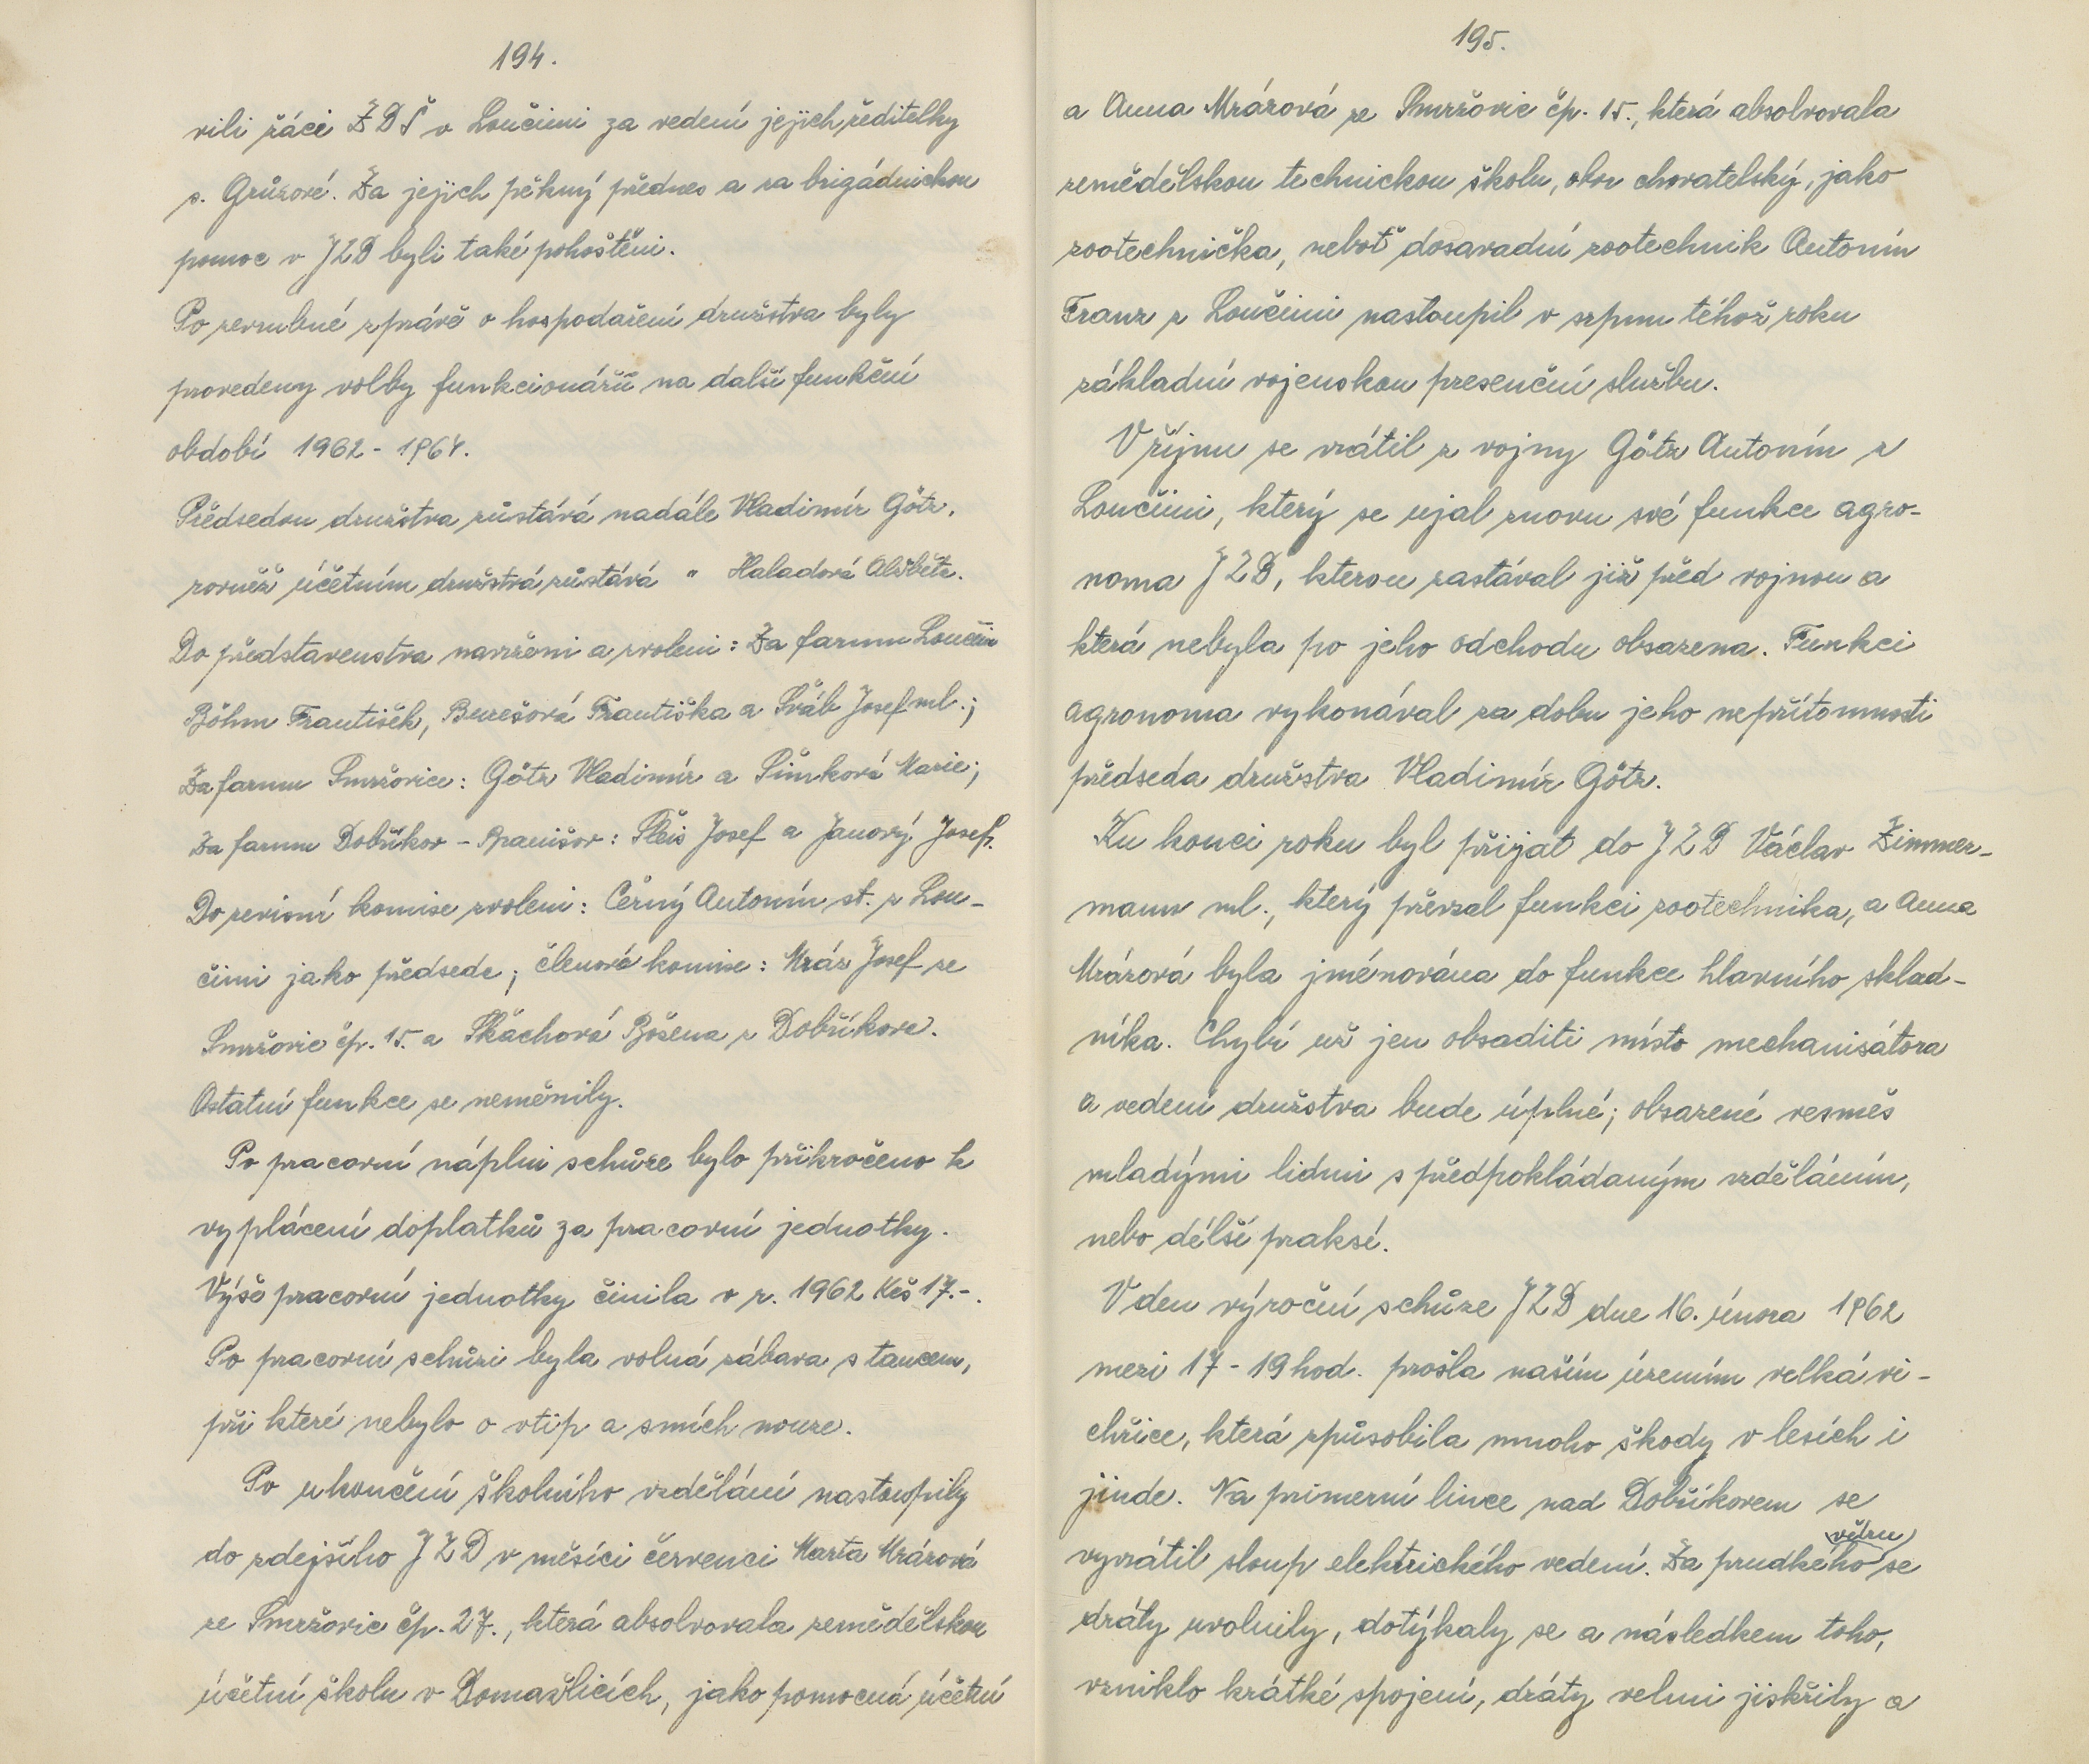 194.
vili žáci ZDŠ v Loučimi za vedení jejich ředitelky
s. Grůzové. Za jejich pěkný přednes a za brigádnickou
pomoc v JZD byli také pohoštěni.
Po zevrubné zprávě o hospodaření družstva byly
provedeny volby funkcionářů na další funkční
období 1962 - 1964.
Předsedou družstva zůstává nadále Vladimír Götz,
rovněž účetním družstvá zůstává " Haladová Alžběta.
Do představenstva navrženi a zvoleni: Za farmu Loučim
Böhm František, Burešová Františka a Šváb Josef ml.;
Za farmu Smržovice: Götz Vladimír a Šimková Marie;
Za farmu Dobříkov - Spanišov: Šleis Josef a Janový Josef.
Do revisní komise zvoleni: Černý Antonín st. z Lou-
čimi jako předseda; členové komise: Mráz Josef ze
Smržovic čp. 15. a Skáchová Božena z Dobříkova.
Ostatní funkce se neměnily.
Po pracovní náplni schůze bylo přikročeno k
vyplácení doplatků za pracovní jednotky.
Výše pracovní jednotky činila v r. 1962 Kčs 17.-.
Po pracovní schůzi byla volná zábava s tancem,
při které nebylo o vtip a smích nouze.
Po ukončení školního vzdělání nastoupily
do zdejšího JZD v měsíci červenci Marta Mrázová
ze Smržovic čp. 27., která absolvovala zemědělskou
účetní školu v Domažlicích, jako pomocná účetní
195.
a Anna Mrázová ze Smržovic čp. 15., která absolvovala
zemědělskou technickou školu, obor chovatelský, jako
zootechnička, neboť dosavadní zootechnik Antonín
Franz z Loučimi nastoupil v srpnu téhož roku
základní vojenskou presenční službu.
V říjnu se vrátil z vojny Götz Antonín z
Loučimi, který se ujal znovu své funkce agro-
noma JZD, kterou zastával již před vojnou a
která nebyla po jeho odchodu obsazena. Funkci
agronoma vykonával za dobu jeho nepřítomnosti
předseda družstva Vladimír Götz.
Ku konci roku byl přijat do JZD Václav Zimmer-
mann ml., který převzal funkci zootechnika, a Anna
Mrázová byla jménována do funkce hlavního sklad-
níka. Chybí už jen obsaditi místo mechanisátora
a vedení družstva bude úplné; obsazené vesměs
mladými lidmi s předpokládaným vzděláním,
nebo délší praksí.
V den výroční schůze JZD dne 16. února 1962
mezi 17 - 19 hod. prošla naším územím velká vi-
chřice, která způsobila mnoho škody v lesích i
jinde. Na primerní lince nad Dobříkovem se
vyvrátil sloup elektrického vedení. Za prudkého větru se
dráty uvolnily, dotýkaly se a následkem toho,
vzniklo krátké spojení, dráty velmi jiskřily a